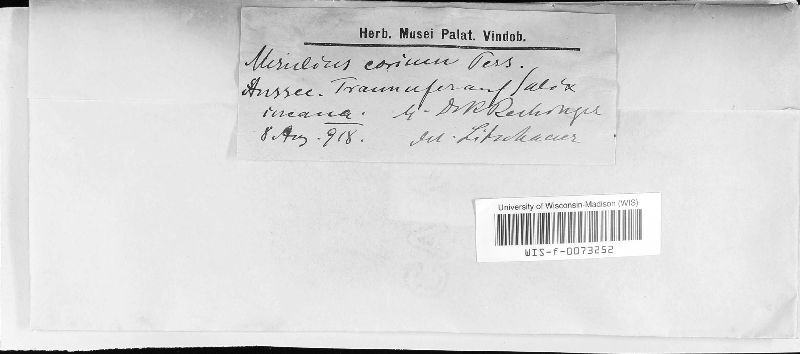 Herb. Musei Palat. Vindob.
Merulius corium Pers.
Aussee. Traunufer auf Salix
incana. lg. Dr K Rechinger
8 Aug. 918. det. Litschauer
University of Wisconsin-Madison (WIS)
WIS-f-0073252